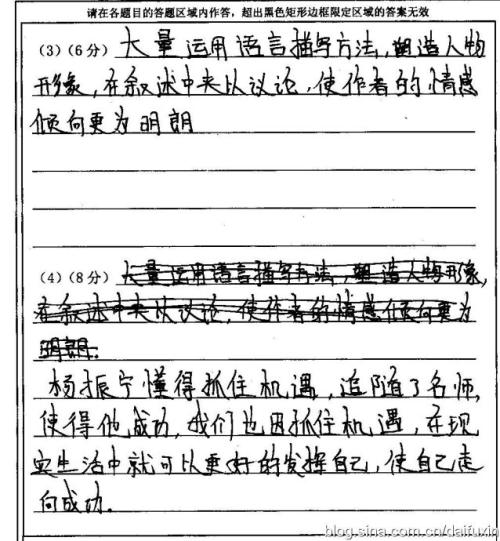 请在各题目的答题区域内作答，超出黑色矩形边框限定区域的答案无效
(3)(6分) 大量运用语言描写方法，塑造人物
形象，在叙述中夹以议论，使作者的情感
倾向更为明朗
(4)(8分) 大量运用语言描写方法，塑造人物形象，
在叙述中夹以议论，使作者的情感倾向更为
明朗.
杨振宁懂得抓住机遇，追随了名师，
使得他成功，我们也因抓住机遇，在现
实生活中就可以更好的发挥自己，使自己走
向成功.
blog.sina.com.cn/daifuxin